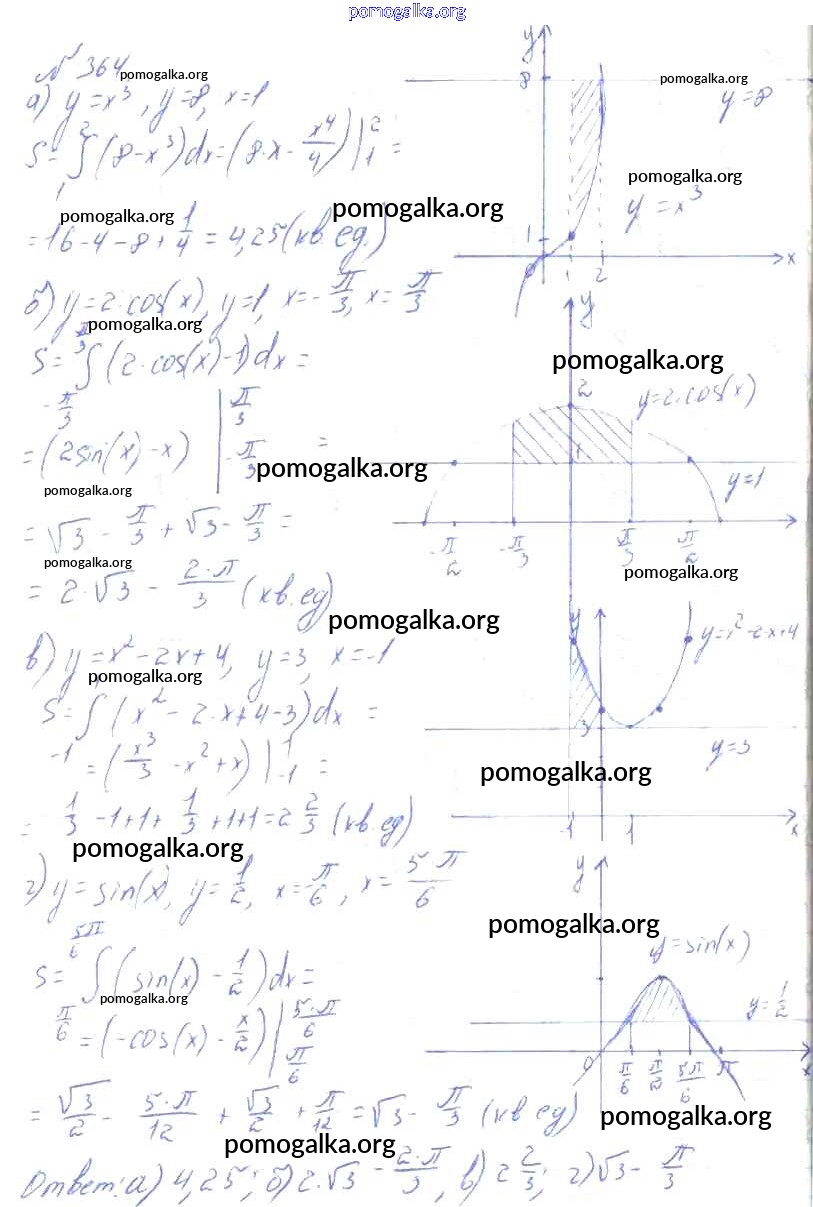 pomogalka.org
№ 364 pomogalka.org
а) y = x³, y = 8, x = 1
S = ∫₁² (8 - x³) dx = (8·x - x⁴/4) |₁² =
pomogalka.org pomogalka.org
= 16 - 4 - 8 + 1/4 = 4,25 (кв. ед.)
б) y = 2·cos(x), y = 1, x = -π/3, x = π/3
pomogalka.org
S = ∫ from -π/3 to π/3 (2·cos(x) - 1) dx =
= (2sin(x) - x) | from -π/3 to π/3 =
pomogalka.org
pomogalka.org
= √3 - π/3 + √3 - π/3 =
pomogalka.org
= 2·√3 - 2·π/3 (кв. ед)
pomogalka.org
в) y = x² - 2x + 4, y = 3, x = -1
pomogalka.org
S = ∫ (x² - 2·x + 4 - 3) dx =
-1
= (x³/3 - x² + x) | from -1 to 1 =
= 1/3 - 1 + 1 + 1/3 + 1 + 1 = 2 2/3 (кв. ед)
pomogalka.org
г) y = sin(x), y = 1/2, x = π/6, x = 5·π/6
S = ∫ from π/6 to 5π/6 (sin(x) - 1/2) dx =
pomogalka.org
= (-cos(x) - x/2) | from π/6 to 5·π/6
= √3/2 - 5·π/12 + √3/2 + π/12 = √3 - π/3 (кв ед)
pomogalka.org
Ответ: а) 4,25; б) 2·√3 - 2·π/3, в) 2 2/3; г) √3 - π/3
y
8
pomogalka.org
y = 8
pomogalka.org
y = x³
1
2
x
y
pomogalka.org
2
y = 2·cos(x)
y = 1
-π/2 -π/3 π/3 π/2
pomogalka.org
y
y = x² - 2·x + 4
3
y = 3
pomogalka.org
-1 1 x
y
pomogalka.org
y = sin(x)
y = 1/2
0 π/6 π/2 5π/6 π x
pomogalka.org